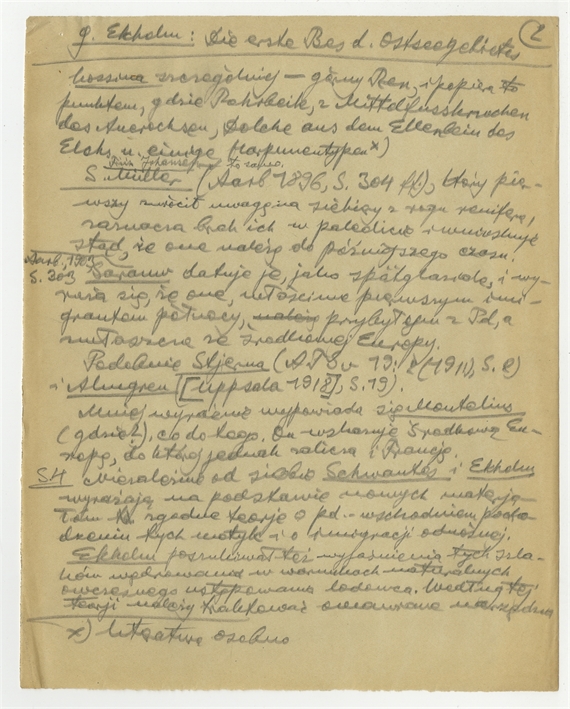 2
G. Ekholm: Die erste Bes. d. Ostseegebietes
Kossinna szczególniej — górny Ren, i popiera to
punktem, gdzie Rohrbeile, z Mittelfussknochen
des Auerochsen, Dolche aus dem Ellenbein des
Elchs u. einige Harpunentypen x)
Johansen to samo.
S. Müller (Aarb 1896, S. 304 ff), który pier-
wszy zwrócił uwagę na siekiery z rogu renifera,
zaznacza brak ich w paleolicie i wnioskuje
stąd, że one należą do późniejszego czasu.
Aarb. 1903
S. 303
Sarauw datuje je, jako spätglaziale, i wy-
raża się, że one, właściwie pierwszym imi-
grantom północy, należą przybyłym z Pd, a
zwłaszcza ze środkowej Europy.
Podobnie Stjerna (ATS v 19: 2 (1911), S. 2)
i Almgren [Uppsala 1918], S. 19).
Mniej wyraźnie wypowiada się Montelius
(gdzie?), co do tego. On wskazuje środkową Eu-
ropę, do której jednak zalicza i Francję.
S4 Niezależnie od siebie Schwantes i Ekholm
wyrażają na podstawie nowych materja-
łów zgodne teorje o pd.-wschodniem pocho-
dzeniu tych motyk i o imigracji odnośnej.
Ekholm poszukiwał też wyjaśnienia tych szla-
ków wędrowania w warunkach naturalnych
owczesnego ustępowania lodowca. Według tej
teorji należy traktować omawiane narzędzia
x) literatura osobno